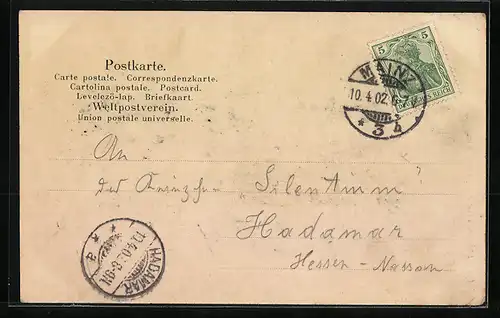 Postkarte.
Carte postale. Correspondenzkarte.
Cartolina postale. Postcard.
Levelező-lap. Briefkaart.
Weltpostverein.
Union postale universelle.
5 5
MAINZ
10.4.02.
* 3 h
An
der "Silentium"
Hadamar
Hessen-Nassau
HADAMAR
* * a